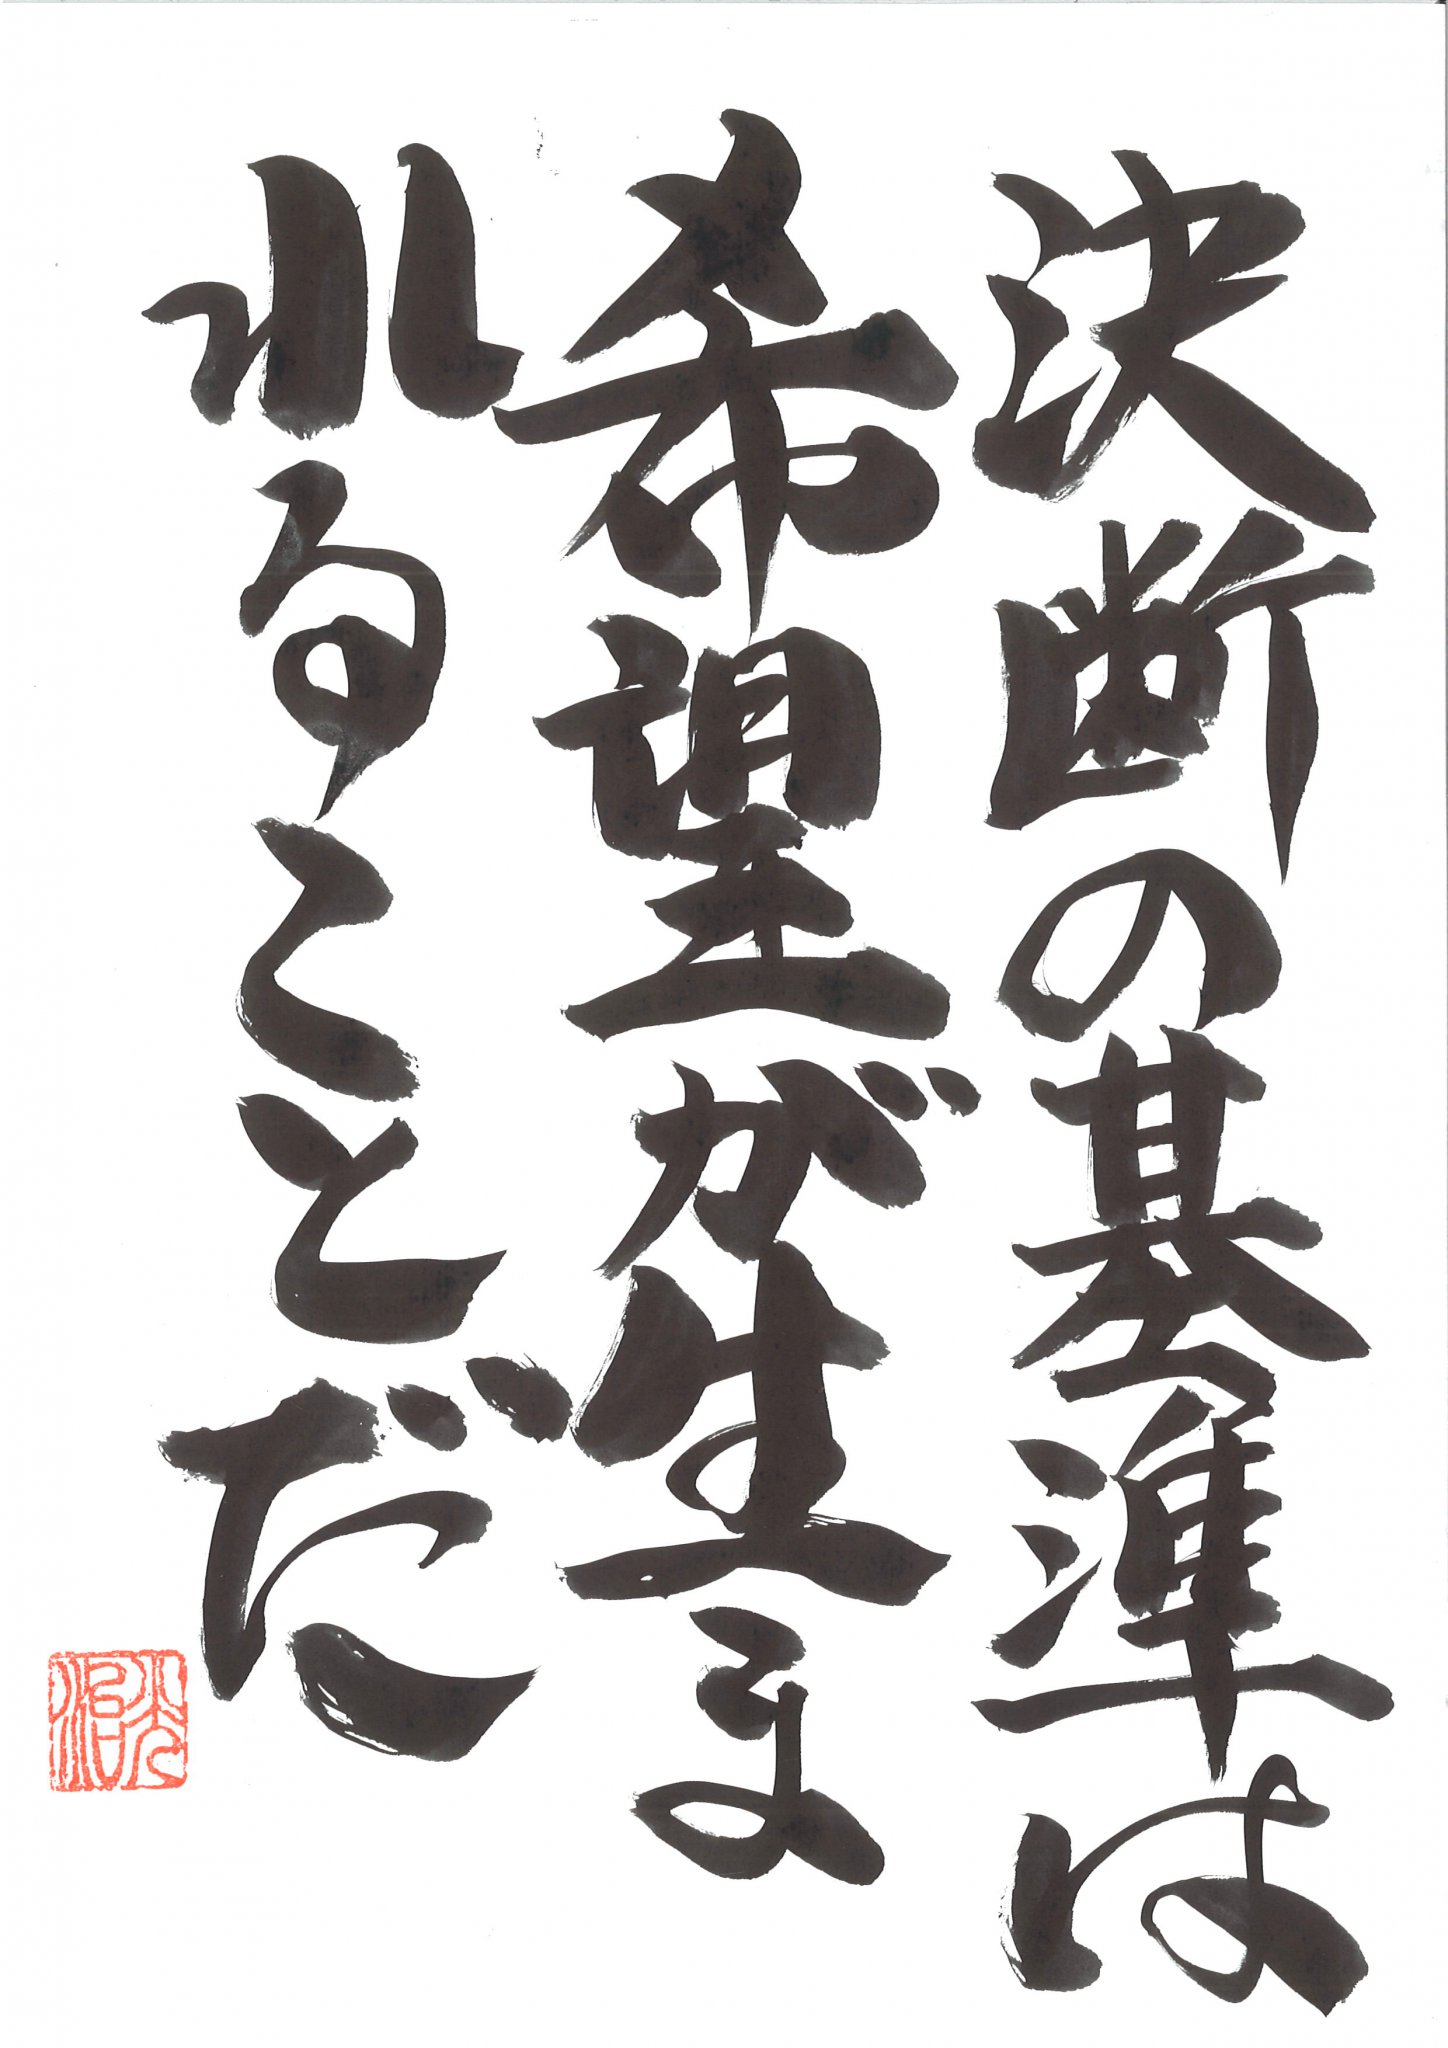 決断の基準は
希望が生ま
れることだ